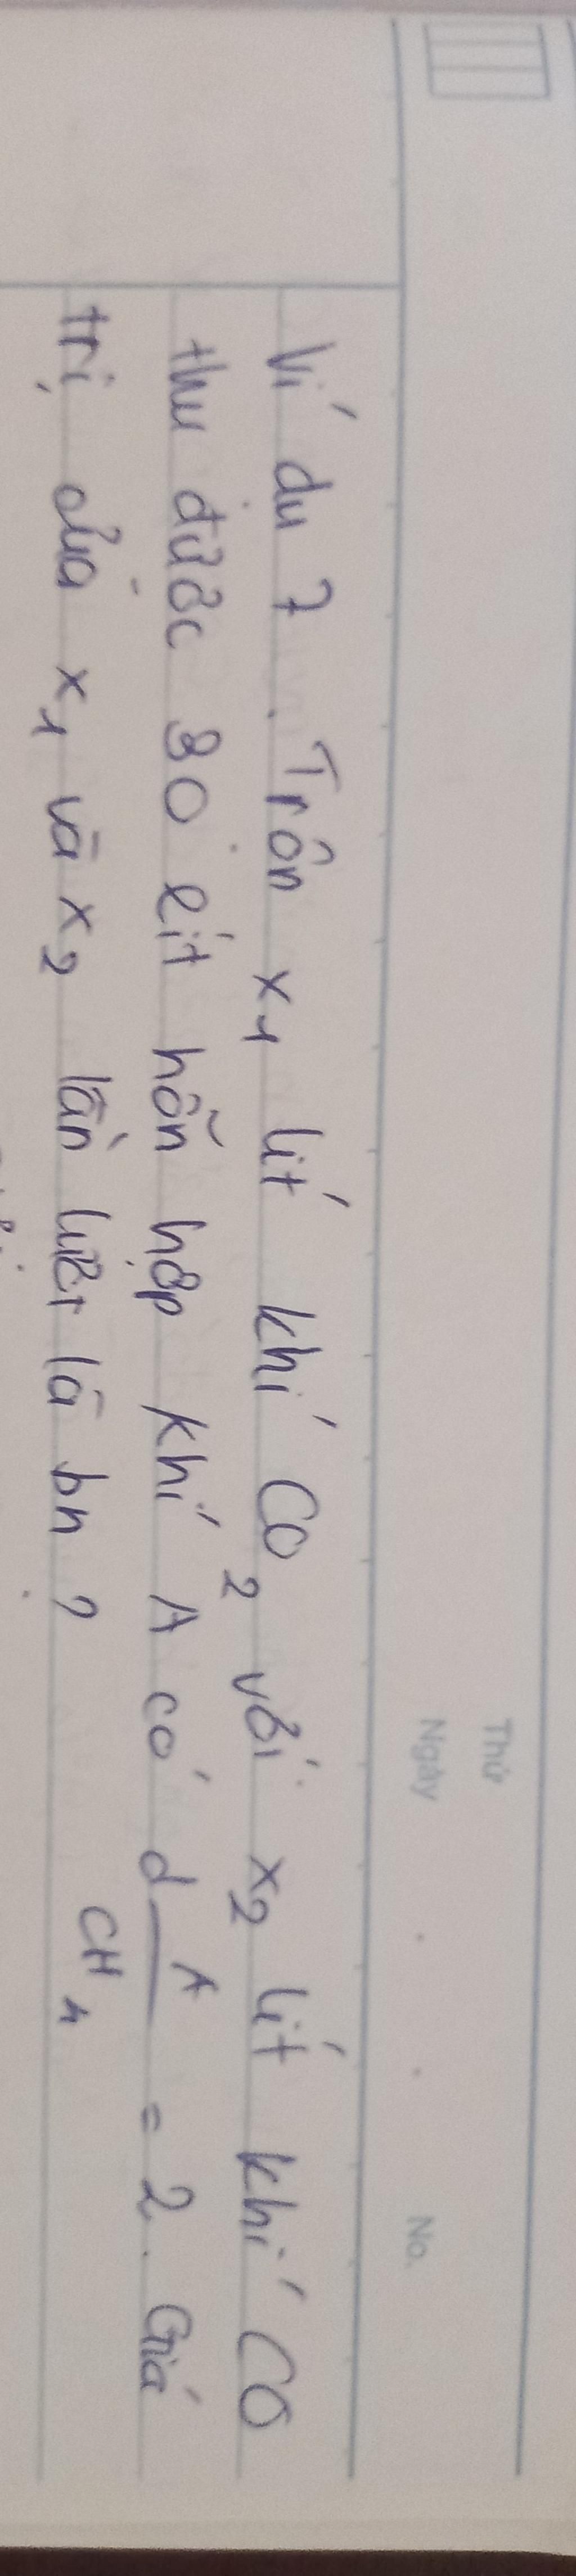 Thứ
Ngày
No.
Ví dụ 7. Trộn x1 lít khí CO2 với x2 lít khí CO
thu được 80 lít hỗn hợp khí A có d A/CH4 = 2. Giá
trị của x1 và x2 lần lượt là bn ?